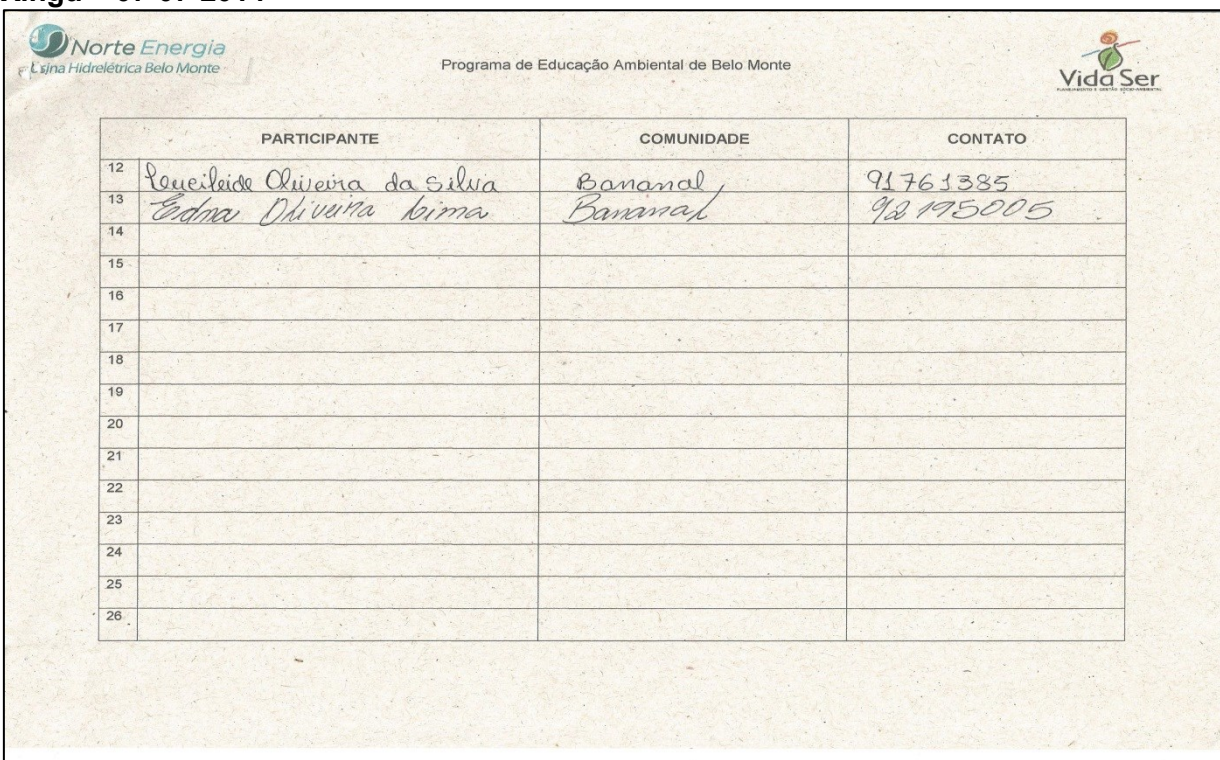 Norte Energia
Usina Hidrelétrica Belo Monte
Programa de Educação Ambiental de Belo Monte
Vida Ser
PLANEJAMENTO E GESTÃO SÓCIO-AMBIENTAL
PARTICIPANTE COMUNIDADE CONTATO
12 Leucileide Oliveira da Silva Bananal 91761385
13 Edna Oliveira Lima Bananal 92195005
14
15
16
17
18
19
20
21
22
23
24
25
26